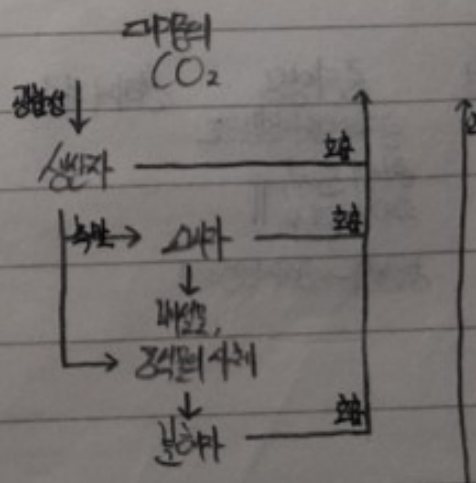 대기중의
CO₂
광합성
생산자 호흡
녹말 소비자 호흡
배설물,
동식물의 사체
분해자 호흡